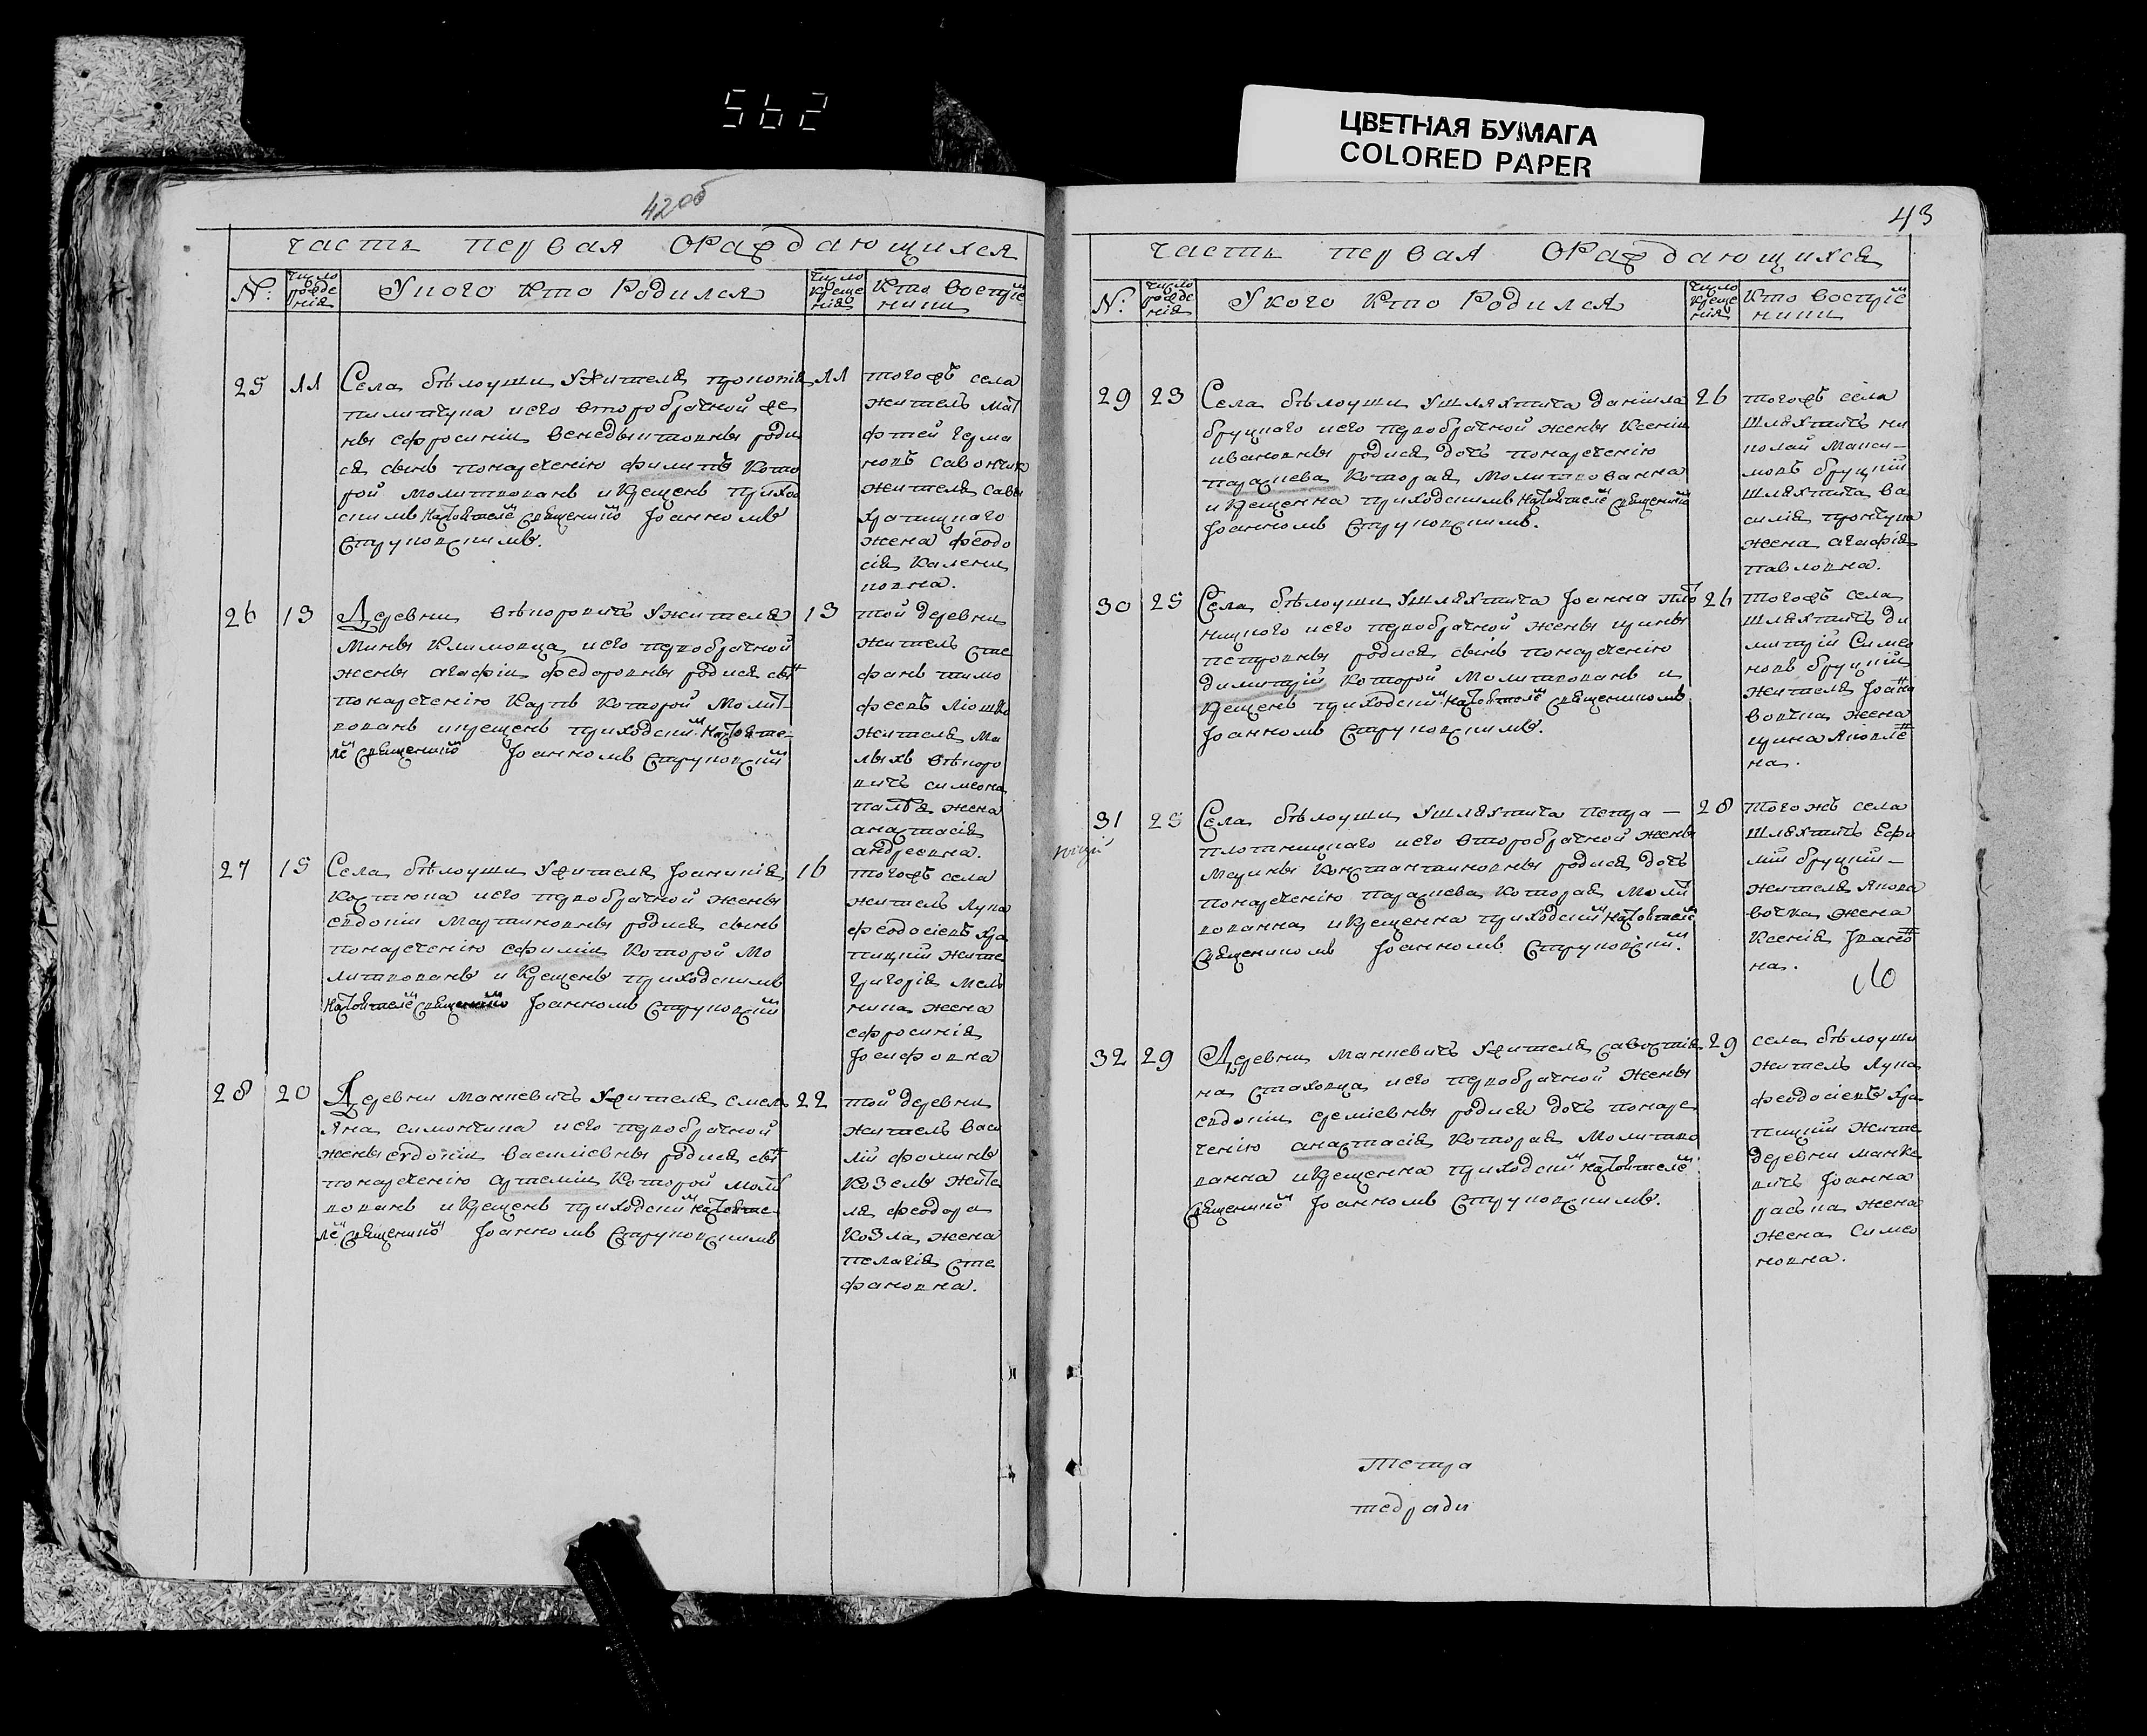 562
ЦВЕТНАЯ БУМАГА
COLORED PAPER
42об
часть первая ораждающихся
№:
число рожде нія
Укого кто Родился
число креще нія
кто воспріе ники
25
11
Села бѣлоуши Ужителя прокопія
пилипчука иего второбрачной же
ны ефросиніи венедыктовны роди
ся сынъ понареченію филипъ кото
рой молитвованъ икрещенъ прихо
скимъ настоятелем священико Іоанномъ
Струковскимъ.
11
тогожъ села
житель мат
фтей герма
новъ савончик
жителя савы
храпицкого
жена феодо
сія калени
ковна.
26
13
Деревни вѣкоровичь Ужителя
Мины Климовца иего первобрачной
жены агафіи федоровны родися сын
понареченію Карпъ которой Молит
вованъ икрещенъ приходским настояте
лем священико Іоанномъ Струковским
13
той деревни
житель сте
фанъ тимо
феевъ
жителя ма
лыхъ вѣкоро
вичь симеона
жена
анастасія
андреевна.
27
15
Села бѣлоуши Ужителя Іоаникія
Костюка иего первобрачной жены
евдокіи Мартиновны родися сынъ
понареченію ефимій которой Мо
литвованъ и крещенъ приходскимъ
настоятелем священико Іоанномъ Струковским
16
тогожъ села
житель Лука
феодосіевъ хра
пицкій жите
Григорія мель
ника жена
ефросинія
Іосифовна
28
20
Деревни манкевичь Ужителя емель
яна симончика иего первобрачной
жены евдокіи василіевны родися сын
понареченію артемій которой моли
вованъ и крещенъ приходским настояте
лем священико Іоанномъ Струковскимъ
22
той деревни
житель васи
лій фоминъ
козелъ жите
ля феодора
козла жена
пелагія сте
фановна.
43
часть первая ораждающихся
№:
число рожде нія
Укого кто Родился
число креще нія
кто воспріе ники
29
23
Села бѣлоуши Ушляхтича даніила
бруцкаго иего первобрачной жены ксеніи
ивановны родися дочь понареченію
параскева которая молитвованна
и крещенна приходскимъ настоятелем священико
Іоанномъ Струковскимъ.
26
тогожъ села
шляхтичъ ни
колай макси
мовъ бруцкій
шляхтича ва
силія прокура
жена агафія
павловна.
30
25
Села бѣлоуши Ушляхтича Іоанна пло
ницкого иего первобрачной жены ирины
петровны родися сынъ понареченію
димитрій которой молитвованъ и
крещенъ приходским настоятелем священикомъ
Іоанномъ Струковскимъ.
26
тогожъ села
шляхтичъ ди
митрій Симео
новъ бруцкій
жителя Іоана
вовчка жена
ирина яковле
на.
31
25
Села бѣлоуши Ушляхтича петра —
плотницкаго иего второбрачной жены
марины константиновны родися дочь
понареченію параскева которая моли
вованна и крещенна приходским настоятелем
священикомъ Іоанномъ Струковским.
28
тогожъ села
шляхтичъ ефи
мій бруцкій —
жителя якова
вовчка жена
ксенія Іоано
на.
32
29
Деревни манкевичь Ужителя савостія
на стаховца иего первобрачной жены
евдокіи еремѣевны родися дочь понаре
ченію анастасія которая молитво
ванна и крещенна приходским настоятелем
священико Іоанномъ Струковскимъ.
29
села бѣлоуши
житель Лука
феодосіевъ хра
пицкій жите
деревни манке
вичь Іоанна
жена
жена Симео
новна.
тетра
тедради